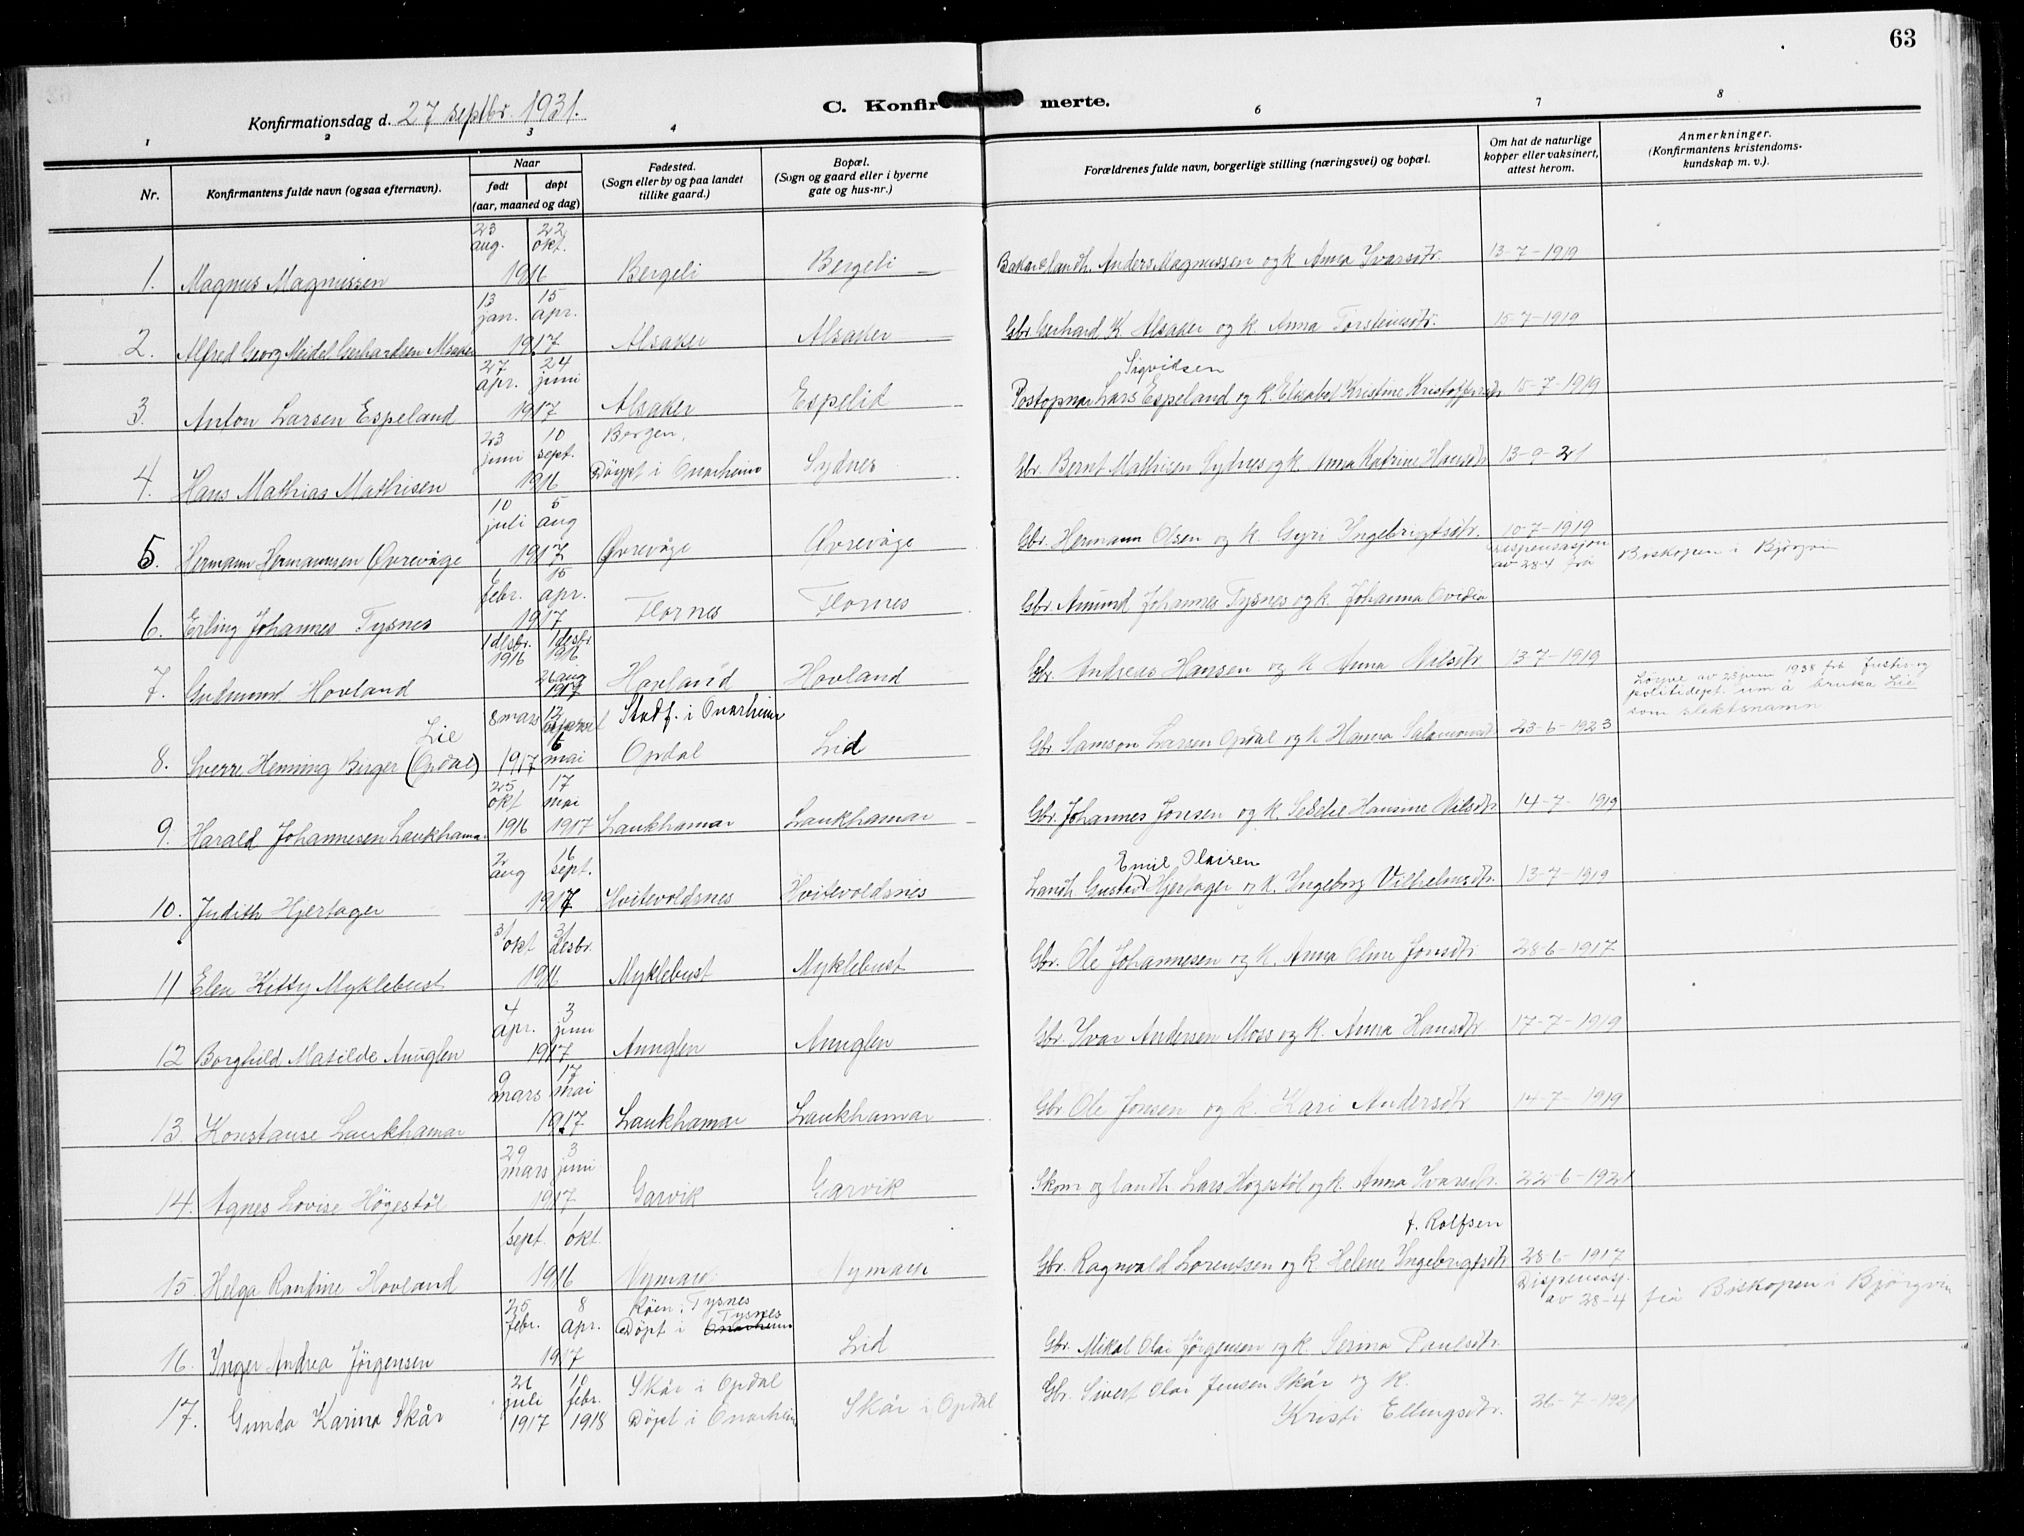 63
Konfirmationsdag d. 27 septbr. 1931.
C. Konfirmerte.
1 2 3 4 6 7 8
Nr.
Konfirmantens fulde navn (ogsaa efternavn).
Naar
født døpt
(aar, maaned og dag)
Fødested.
(Sogn eller by og paa landet
tillike gaard.)
Bopæl.
(Sogn og gaard eller i byerne
gate og hus-nr.)
Forældrenes fulde navn, borgerlige stilling (næringsvei) og bopæl.
Om hat de naturlige
kopper eller vaksinert,
attest herom.
Anmerkninger.
(Konfirmantens kristendoms-
kundskap m. v.).
23 aug. 22 okt.
1. Magnus Magnussen 1916 Bergeli Bergeli Bakar & landh. Anders Magnussen og k Anna Ivarsdtr. 13-7-1919
13 jan. 15 apr.
2. Alfred Georg Meidel Gerhardsen Alsaker 1917 Alsaker Alsaker Gbr. Gerhard K. Alsaker og k. Anna Torsteinsdtr. 15-7-1919
27 apr. 24 juni Sigvidsen
3. Anton Larsen Espeland 1917 Alsaker Espelid Postopnar Lars Espeland og k. Elisabet Kristine Kristoffersdtr 10-7-1919
23 juni 10 sept. Bergen,
4. Hans Mathias Mathisen 1916 Döypt i Onarheim Sydnes Gbr. Bernt Mathisen Sydnes og k. Anna Katrine Hansdtr 13-9-21
10 juli 5 aug
5. Hermann Hermannsen Øvrevåge 1917 Øvrevåge Øvrevåge Gbr. Hermann Olsen og k. Gyri Ingebrigtsdtr. 10-7-1919
1 febr. 15 apr. Dispensasjon av 28-4 frå Biskopen i Bjørgvin
6. Erling Johannes Tysnes 1917 Flornes Flornes Gbr. Amund Johannes Tysnes og k. Johanna Ovidia
1 desbr. 1916 1 desbr 1916
7. Gudmund Hovland 26 aug 1917 Hovland Hovland Gbr. Andreas Hansen og k Anna Nilsdtr 13-7-1919
Løyve av 23 juni 1938 frå Justis- og
politidept. um å bruka Lie
som slektsnamn
Lie 8 mars Stadf. i Onarheim
8. Sverre Henning Birger (Opdal) 1917 6 mai Opdal Lid Gbr. Samson Larsen Opdal og k Hanna Salamonsdtr 23-6-1923
25 okt 17 mai
9. Harald Johannesen Laukhamar 1916 1917 Laukhamar Laukhamar Gbr. Johannes Jonsen og k. Seselie Hansine Nilsdtr 14-7-1919
2 aug 16 sept. Emil Olaisen
10. Judith Hjertager 1917 Hvitevoldsnes Hvitevoldsnes Landh. Gustav Hjertager og k. Ingeborg Vilhelmsdtr. 13-7-1919
31 okt 31 desbr.
11 Elen Kitty Myklebust 1916 Myklebust Myklebust Gbr. Ole Johannesen og k. Anna Oline Jonsdtr 28-6-1917
4 apr. 3 juni
12 Borghild Matilde Anuglen 1917 Anuglen Anuglen Gbr. Ivar Andersen Moss og k. Anna Hansdtr 17-7-1919
9 mars 17 mai
13. Konstanse Laukhamar 1917 Laukhamar Laukhamar Gbr Ole Jonsen og k. Kari Andersdtr 14-7-1919
29 mars 3 juni
14. Agnes Lovise Högestöl 1917 Garvik Garvik Skom og landh. Lars Høgestöl og k. Anna Ivarsdtr. 22-6-1921
1 sept. 1 okt. f. Rolfsen
15. Helga Rantine Hovland 1916 Nymark Nymark Gbr. Ragnvald Lorentsen og k Helene Ingebrigtsdtr 28-6-1917
25 febr. 8 apr. Köen i Tysnes Dispensasj. av 28-4 frå Biskopen i Bjørgvin
Tysnes
16. Inger Andrea Jörgensen 1917 Döpt i Onarheim Lid Gbr. Mikal Olai Jörgensen og k. Serina Paulsdtr.
21 juli 10 febr. Skår i Opdal Gbr. Sivert Olai Jensen Skår og k.
17. Gunda Karina Skår 1917 1918 Döpt i Onarheim Skår i Opdal Kristi Ellingsdtr. 26-7-1921